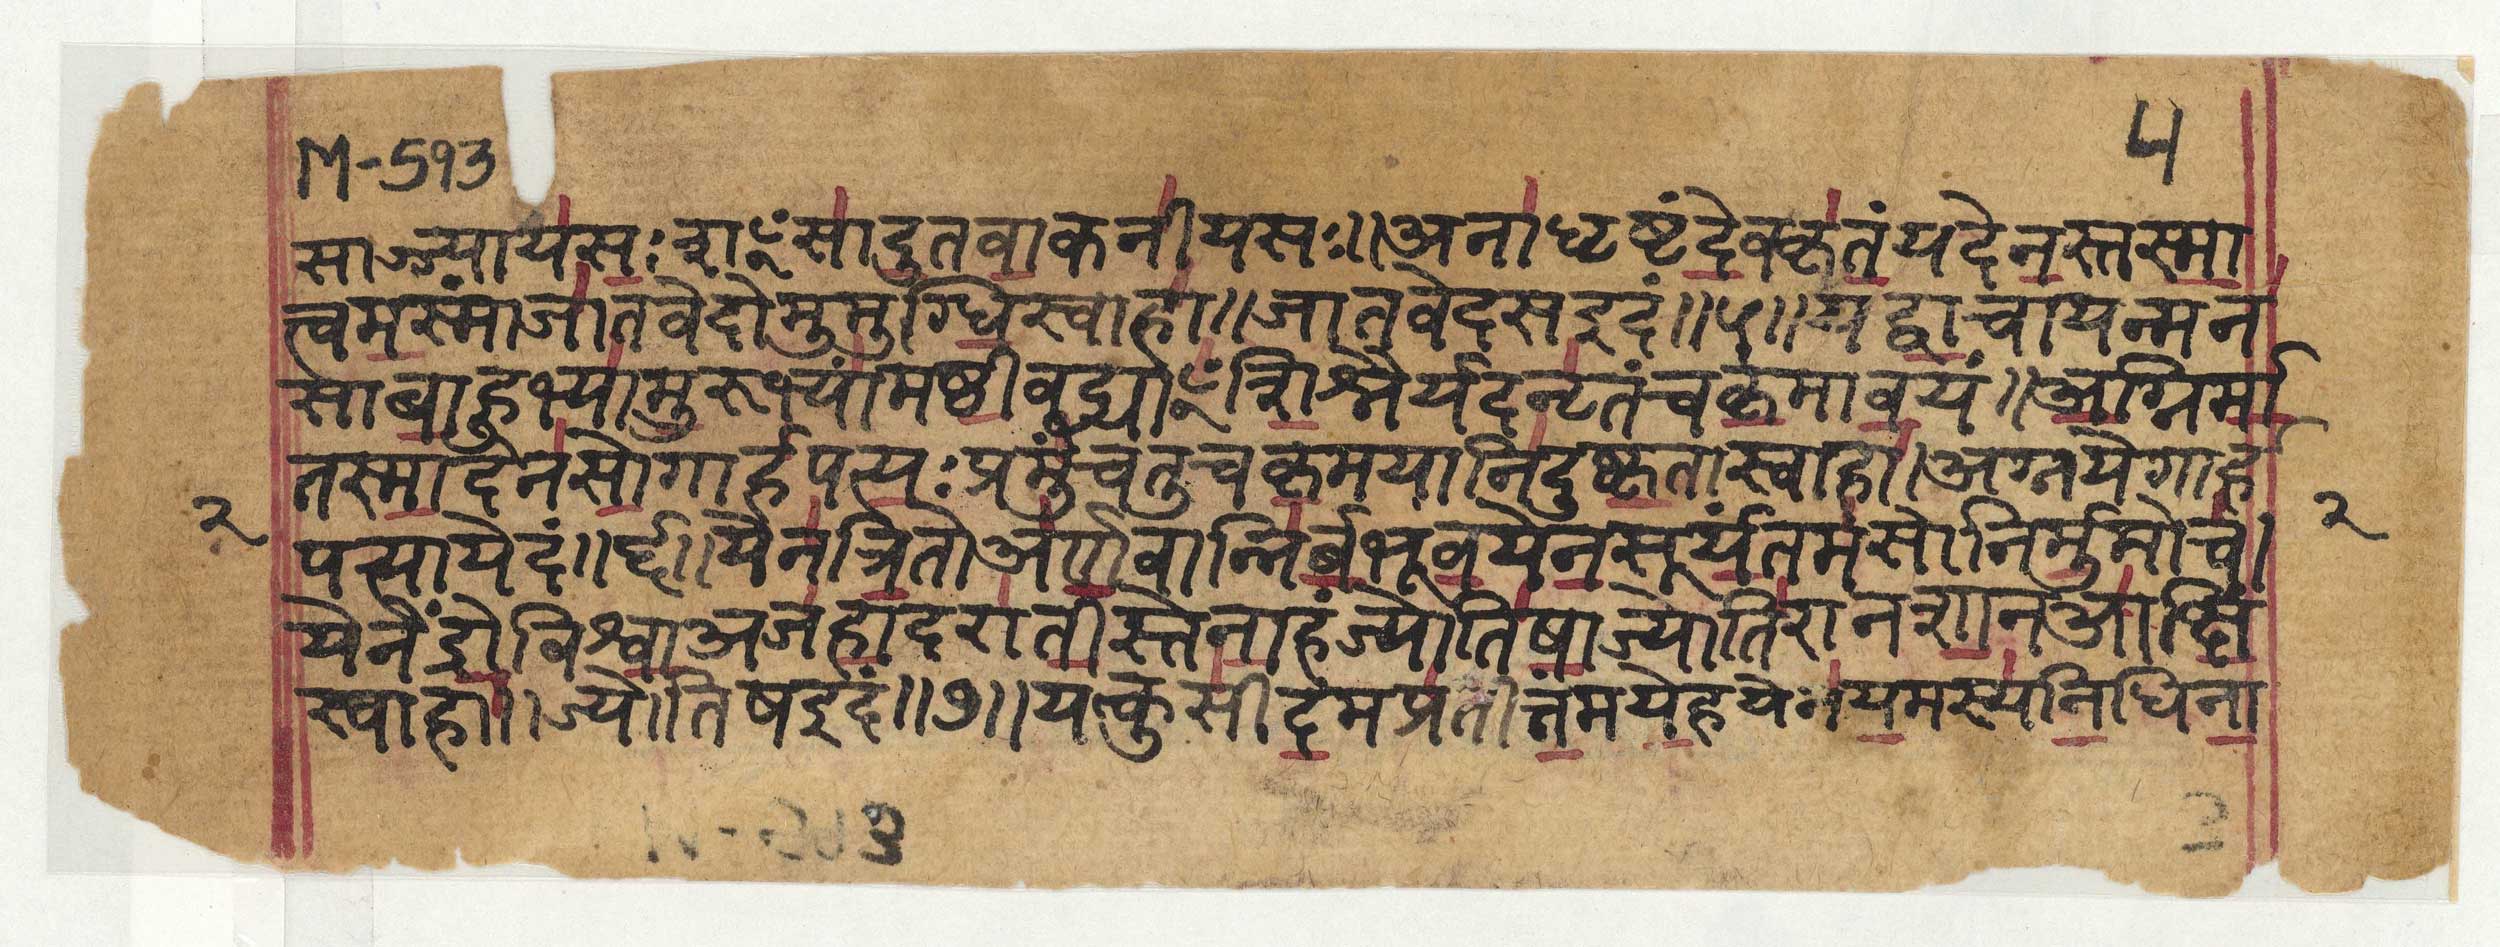 M-593
५
साज्यायसः शꣳसादुतवाकनीयसः॥अनाधृष्टंदेवकृतंयदेनस्तस्मा
त्त्वमस्मंाजातवेदोमुमुग्धिस्वाहा॥जातवेदसइदं॥५॥यद्वाचायन्मन
साबाहुभ्यामुरुभ्यामष्ठीवद्भ्याꣳशिश्नैर्यदनृतंचकृमावयं॥अग्निर्मा
तस्मादेनसोगार्हपत्यःप्रमुंचतुचकृमयानिदुष्कृतास्वाहा।अग्नयेगार्ह
२ २
पत्यायेदं॥६॥येनत्रितोअर्णवान्निर्बभूवयेनसूर्यंतमसोनिर्मुमोच।
येनेंद्रोविश्वाअजहादरातीस्तेनाहंज्योतिषाज्योतिरानशानआक्षि
स्वाहा॥ज्योतिषइदं॥७॥यत्कुसीदमप्रतीत्तंमयेहयेनयमस्यनिधिना